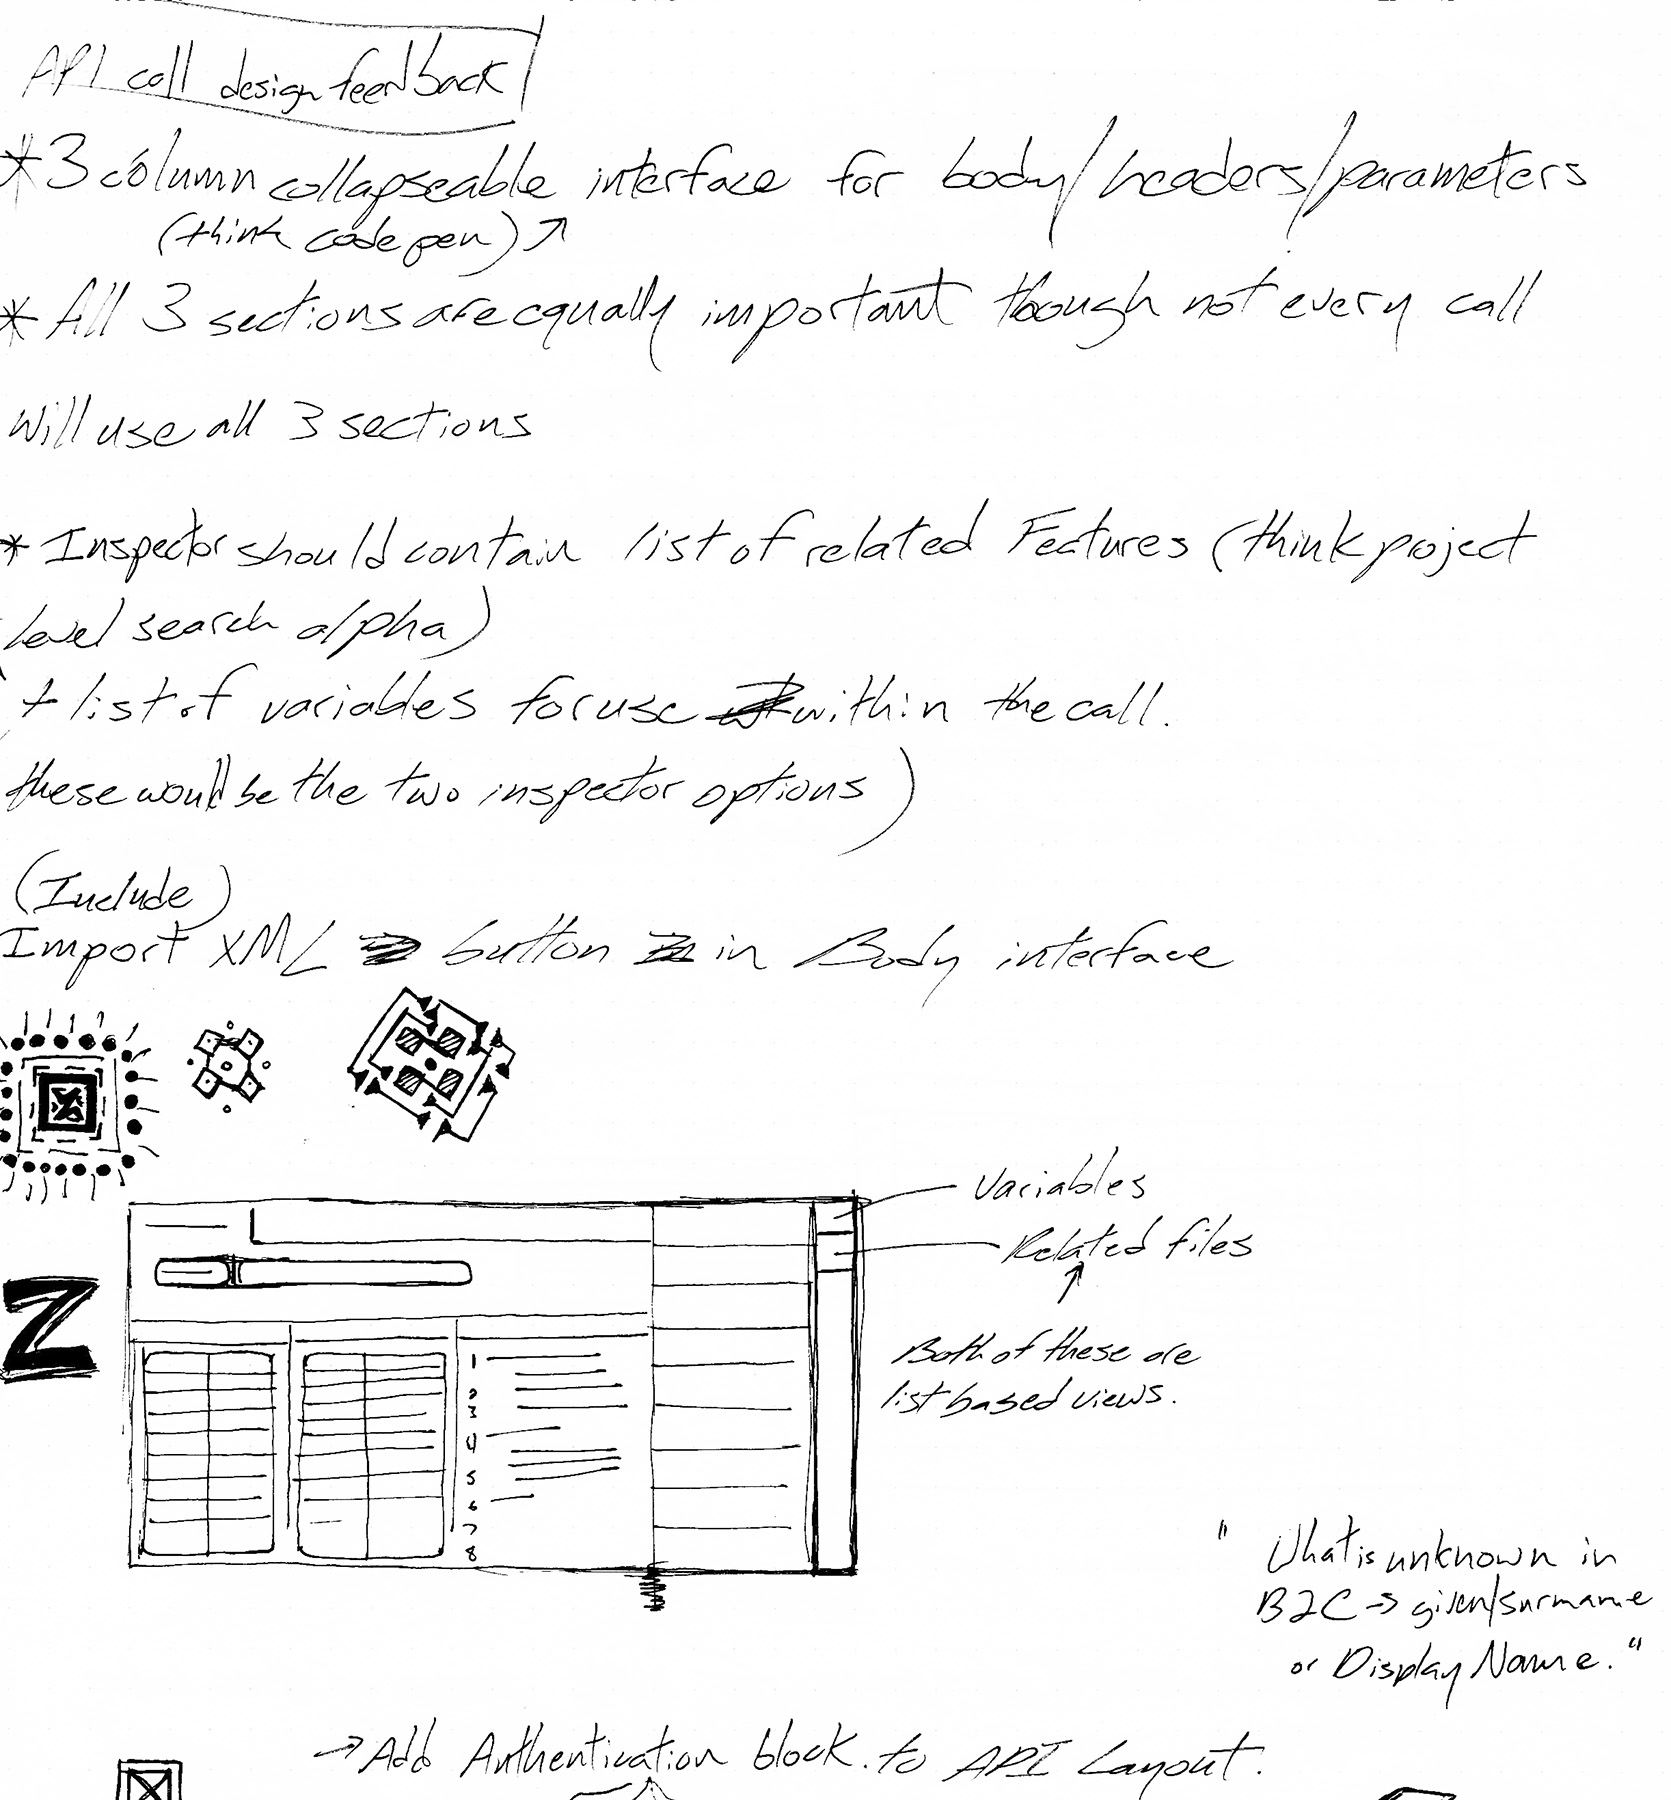 API call design feedback
* 3 column collapseable interface for body/headers/parameters
(think codepen) ↗
* All 3 sections are equally important though not every call
Will use all 3 sections
* Inspector should contain list of related Features (think project
level search alpha)
+ list of variables for use within the call.
these would be the two inspector options)
(Include)
Import XML button in Body interface
Variables
Related files
Both of these are
list based views.
Z
1
2
3
4
5
6
7
8
" What is unknown in
B2C → given/surname
or Display Name."
→ Add Authentication block. to API Layout.